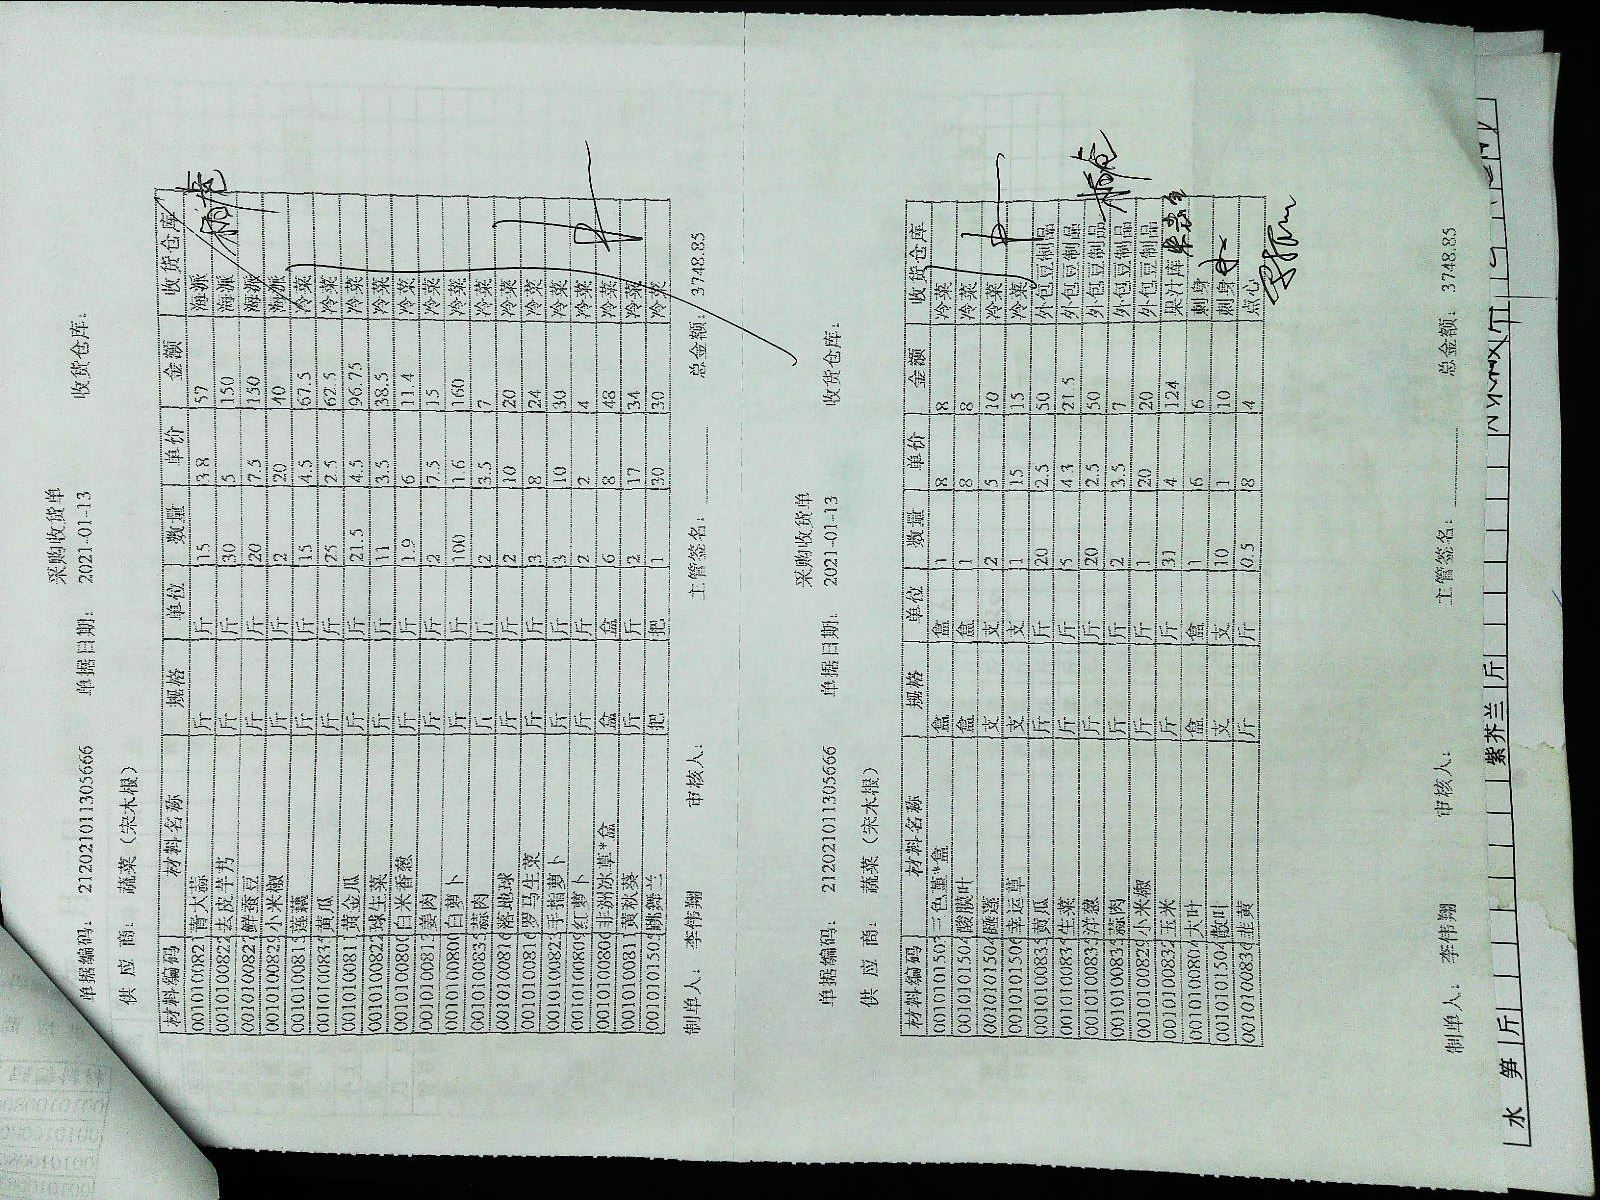 采购收货单
单据编码: 212021011305666 单据日期: 2021-01-13 收货仓库:
供 应 商: 蔬菜 (宋木根)
材料编码 材料名称 规格 单位 数量 单价 金额 收货仓库
0010100821 青大蒜 斤 斤 15 3.8 57 海派
0010100822 去皮芋艿 斤 斤 30 5 150 海派
0010100827 鲜蚕豆 斤 斤 20 7.5 150 海派
0010100829 小米椒 斤 斤 2 20 40 海派
001010081 莲藕 斤 斤 15 4.5 67.5 冷菜
001010083 黄瓜 斤 斤 25 2.5 62.5 冷菜
001010081 黄金瓜 斤 斤 21.5 4.5 96.75 冷菜
0010100822 球生菜 斤 斤 11 3.5 38.5 冷菜
0010100800 白米香葱 斤 斤 1.9 6 11.4 冷菜
001010081 姜肉 斤 斤 2 7.5 15 冷菜
0010100800 白萝卜 斤 斤 100 1.6 160 冷菜
001010083 蒜肉 斤 斤 2 3.5 7 冷菜
0010100816 落地球 斤 斤 2 10 20 冷菜
0010100816 罗马生菜 斤 斤 3 8 24 冷菜
001010082 手指萝卜 斤 斤 3 10 30 冷菜
0010100809 红萝卜 斤 斤 2 2 4 冷菜
0010100806 非洲冰草*盒 盒 盒 6 8 48 冷菜
001010081 黄秋葵 斤 斤 2 17 34 冷菜
001010150 跳舞兰 把 把 1 30 30 冷菜
制单人: 李伟翔 审核人: 主管签名: 总金额: 3748.85
采购收货单
单据编码: 212021011305666 单据日期: 2021-01-13 收货仓库:
供 应 商: 蔬菜 (宋木根)
材料编码 材料名称 规格 单位 数量 单价 金额 收货仓库
001010150 三色堇*盒 盒 盒 1 8 8 冷菜
0010101504 酸膜叶 盒 盒 1 8 8 冷菜
0010101504 睡莲 支 支 2 5 10 冷菜
0010101506 幸运草 支 支 1 15 15 冷菜
001010083 黄瓜 斤 斤 20 2.5 50 外包豆制品
001010083 生菜 斤 斤 5 4.3 21.5 外包豆制品
001010083 洋葱 斤 斤 20 2.5 50 外包豆制品
001010083 蒜肉 斤 斤 2 3.5 7 外包豆制品
0010100829 小米椒 斤 斤 1 20 20 外包豆制品
0010100832 玉米 斤 斤 31 4 124 果汁库
0010100804 大叶 盒 盒 1 6 6 刺身
0010101504 散叶 支 支 10 1 10 刺身
0010100836 韭黄 斤 斤 0.5 8 4 点心
制单人: 李伟翔 审核人: 主管签名: 总金额: 3748.85
水 笋 斤 紫芥兰 斤